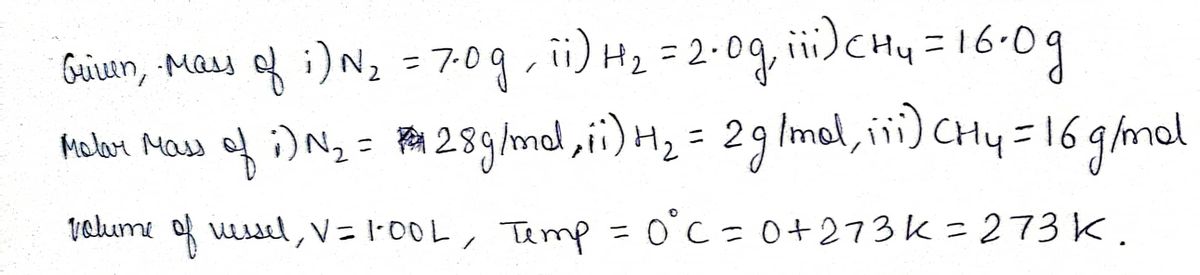 Given, Mass of i) N₂ = 7.0g, ii) H₂ = 2.0g, iii) CH₄ = 16.0g
Molar Mass of i) N₂ = 28g/mol, ii) H₂ = 2g/mol, iii) CH₄ = 16 g/mol
Volume of vessel, V = 1.00L, Temp = 0°C = 0+273K = 273K.